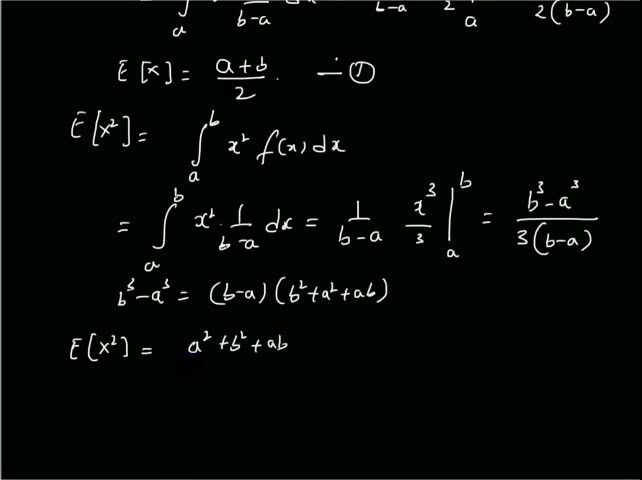 ∫ₐ b-a b-a 2 a 2(b-a)
E[x] = (a+b)/2. — ①
E[x²] = ∫ₐᵇ x² f(x) dx
= ∫ₐᵇ x² · 1/(b-a) dx = 1/(b-a) x³/3 |ₐᵇ = (b³-a³)/(3(b-a))
b³-a³ = (b-a)(b²+a²+ab)
E[x²] = a²+b²+ab